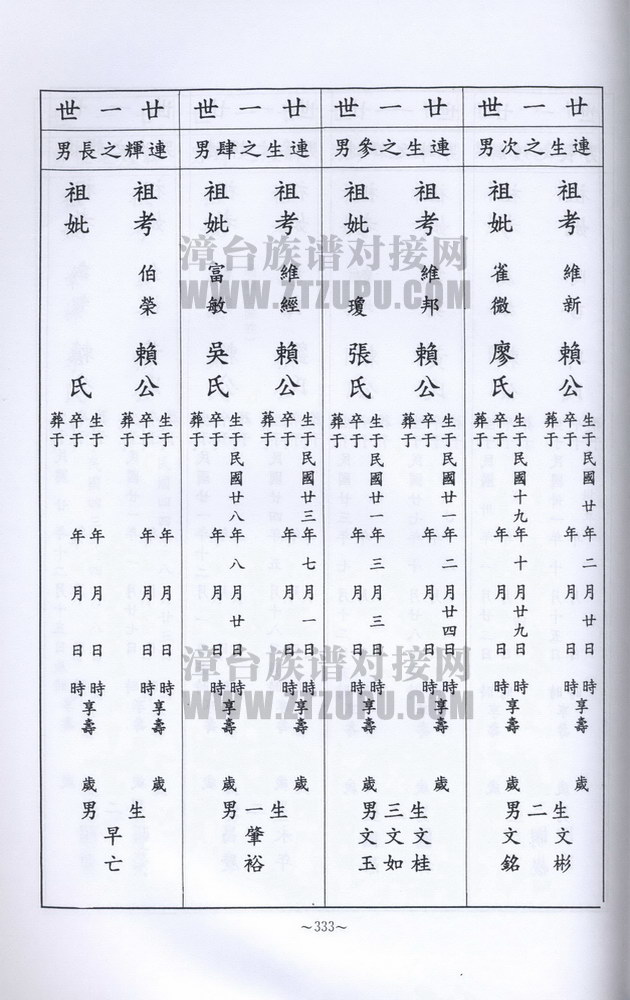 廿一世
連生之次男
祖考 維新 賴公
生于民國廿年二月廿日時
卒于 年 月 日 時享壽 歲
葬于
祖妣 雀微 廖氏
生于民國十九年十月廿九日時
卒于 年 月 日 時享壽 歲
葬于
生二男
文彬
文銘
廿一世
連生之參男
祖考 維邦 賴公
生于民國廿一年二月廿四日時
卒于 年 月 日 時享壽 歲
葬于
祖妣 瓊 張氏
生于民國廿一年三月三日時
卒于 年 月 日 時享壽 歲
葬于
生三男
文桂
文如
文玉
廿一世
連生之肆男
祖考 維經 賴公
生于民國廿三年七月一日時
卒于 年 月 日 時享壽 歲
葬于
祖妣 富敏 吳氏
生于民國廿八年八月廿日時
卒于 年 月 日 時享壽 歲
葬于
生一男
肇裕
廿一世
連輝之長男
祖考 伯榮 賴公
生于 年 月 日時
卒于 年 月 日 時享壽 歲
葬于
祖妣 氏
生于 年 月 日時
卒于 年 月 日 時享壽 歲
葬于
生 男
早亡
~333~
漳台族谱对接网
WWW.ZTZUPU.COM
漳台族谱对接网
WWW.ZTZUPU.COM